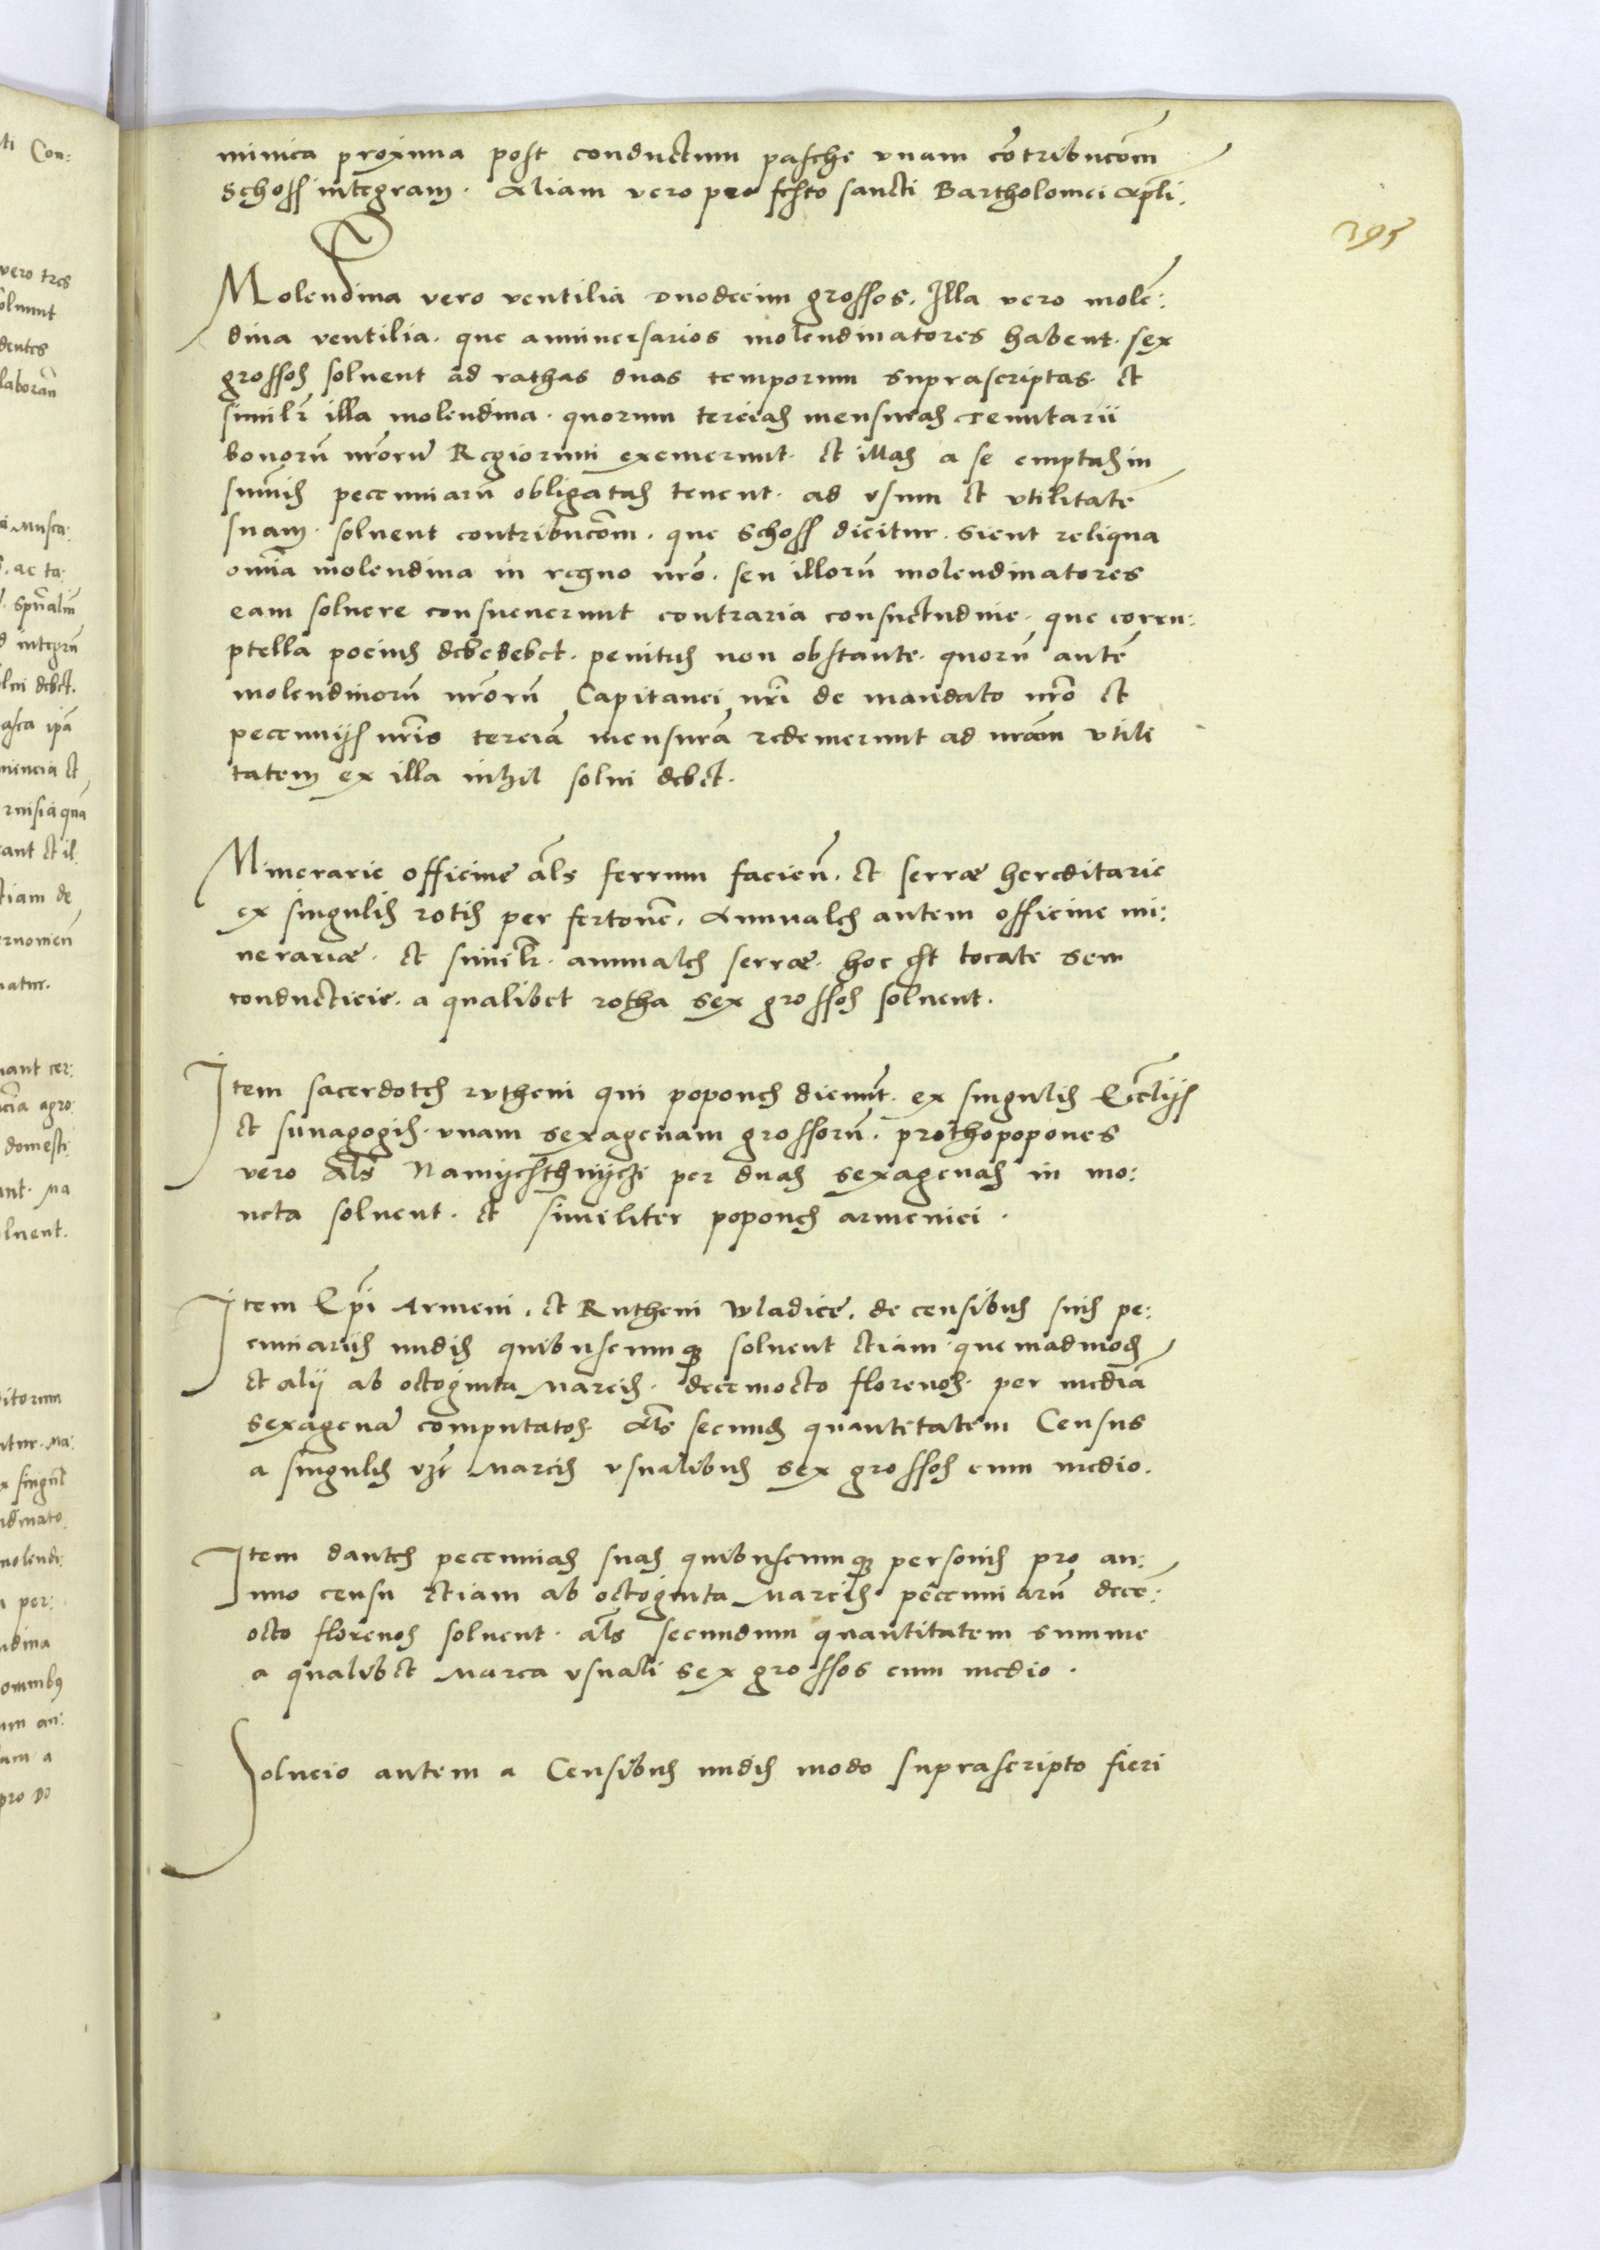 minica proxima post conductum pasche vnam cōtribucōm
Schoss integram. Aliam vero pro festo sancti Bartholomei Apl̄i.
295
Molendina vero ventilia duodecim grossos. Illa vero molē:
dina ventilia. que anniuersarios molendinatores habent. sex
grossos soluent ad rathas duas temporum suprascriptas. et
similr̄ illa molendina. quorum tercias mensuras Tenutarii
bonorū nr̄orū Regiorum exemerunt. et illas a se emptas in
sum̄is pecuniarū obligatas tenent. ad vsum et vtilitatē
suam. soluent contribucōm. que Schoss dicitur. sicut reliqua
om̄ia molendina in regno nr̄o. seu illorū molendinatores
eam soluere consueuerunt contraria consuetudine. que corru:
ptella pocius debebet. penitus non obstante. quorū autē
molendinorū nr̄orū Capitanei nr̄i de mandato nr̄o et
pecunijs nr̄is terciā mensurā redemerunt ad nr̄am vtili
tatem ex illa inhil solui debet.
Minerarie officine al̄s ferrum facien̄. et serræ hereditarie
ex singulis rotis per fertonē. Annuales autem officine mi:
nerariæ. et similr̄. annuales serræ. hoc est locate seu
conducticie. a qualibet rotha sex grossos soluent.
Item sacerdotes rutheni qui popones dicunt̄. ex singulis Eccl̄ijs
et sunagogis. vnam sexagenam grossorū. prothopopones
vero al̄s Namyesthnyczi per duas sexagenas in mo:
neta soluent. et similiter popones armenici.
Item Ep̄i Armeni. et Rutheni wladice. de censibus suis pe:
cuniariis nudis quibuscumq₃ soluent etiam quemadmod̄
et alij ab octoginta Marcis. decemocto florenos. per mediā
sexagenā computatos. al̄s secund̄ quantitatem Census
a singulis vz̄t Marcis vsualibus sex grossos cum medio.
Item dantes pecunias suas quibuscumq₃ personis pro an:
nuo censu etiam ab octoginta Marcis pecuniarū decē:
octo florenos soluent. al̄s secundum quantitatem summe
a qualibet Marca vsuali sex grossos cum medio.
Solucio autem a Censibus nudis modo suprascripto fieri